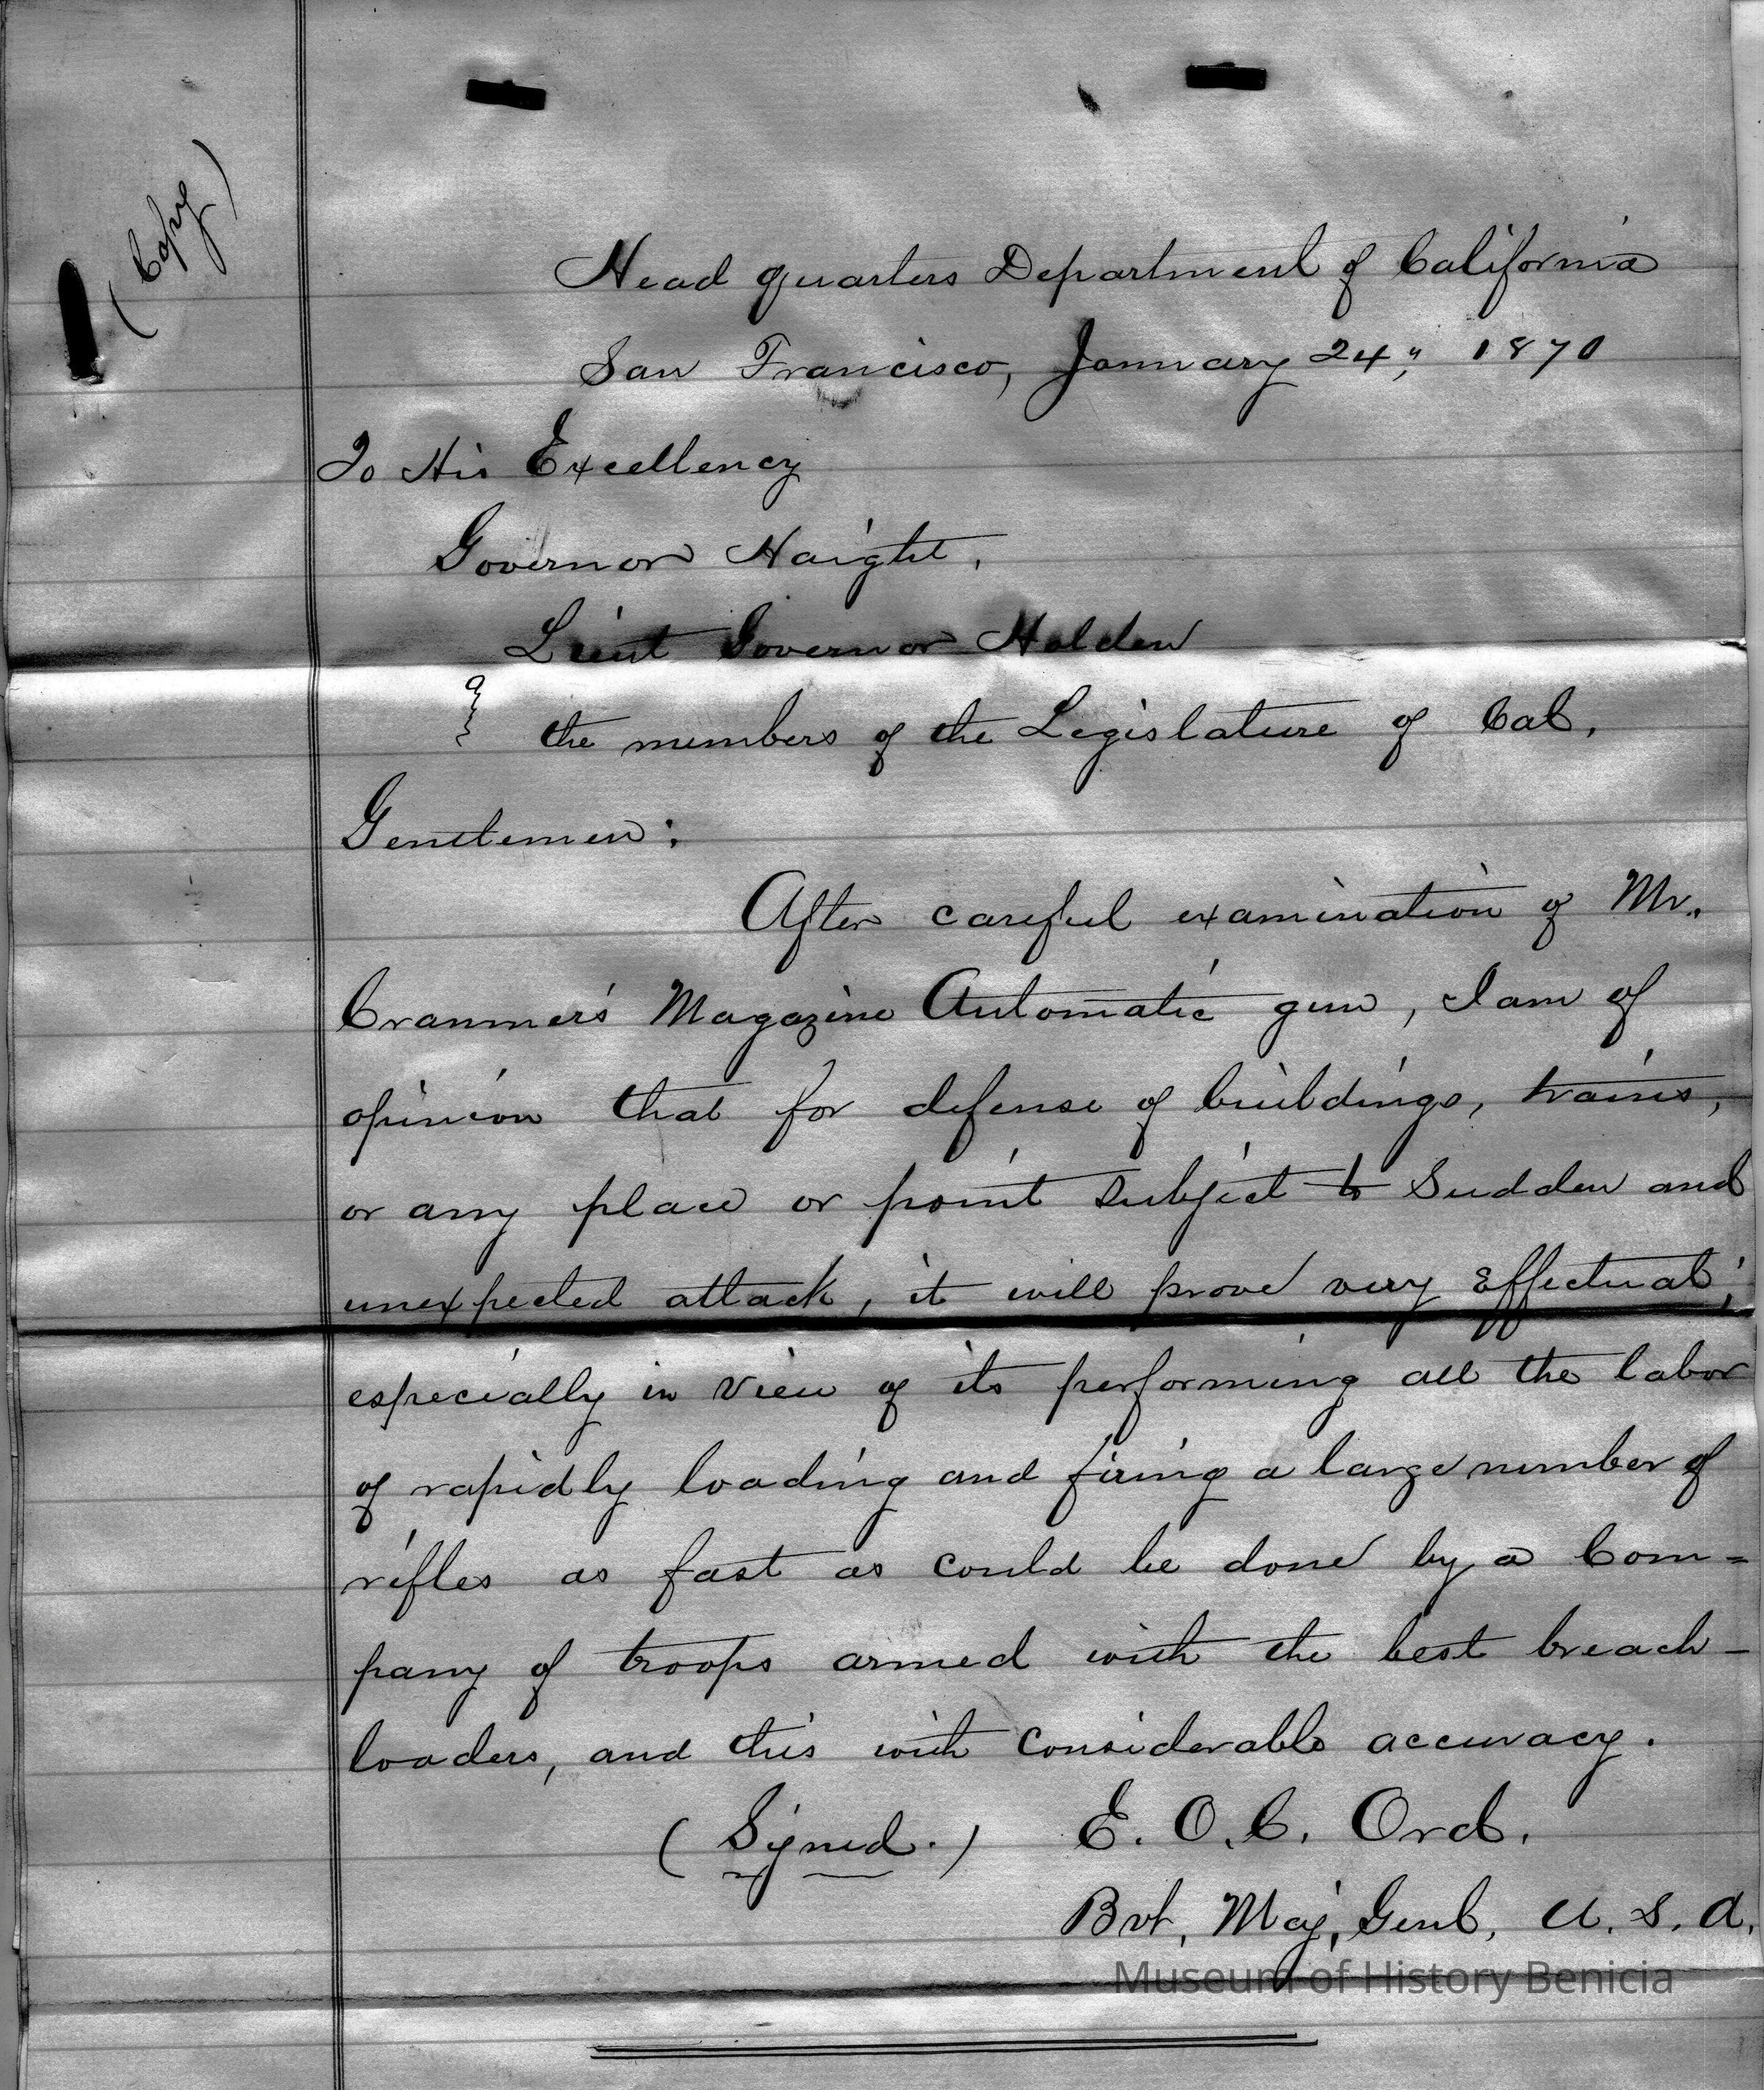 (Copy)
Head quarters Department of California
San Francisco, January 24", 1870
To His Excellency
Governor Haight,
Lieut Governor Holden
& the members of the Legislature of Cal.
Gentlemen:
After careful examination of Mr.
Cranmer's Magazine Automatic gun, I am of
opinion that for defense of buildings, trains,
or any place or point subject to sudden and
unexpected attack, it will prove very effectual;
especially in view of its performing all the labor
of rapidly loading and firing a large number of
rifles as fast as could be done by a Com=
pany of troops armed with the best breach-
loaders, and this with considerable accuracy.
(Signed.) E. O. C. Ord.
Bvt. Maj. Genl. U. S. A.
Museum of History Benicia